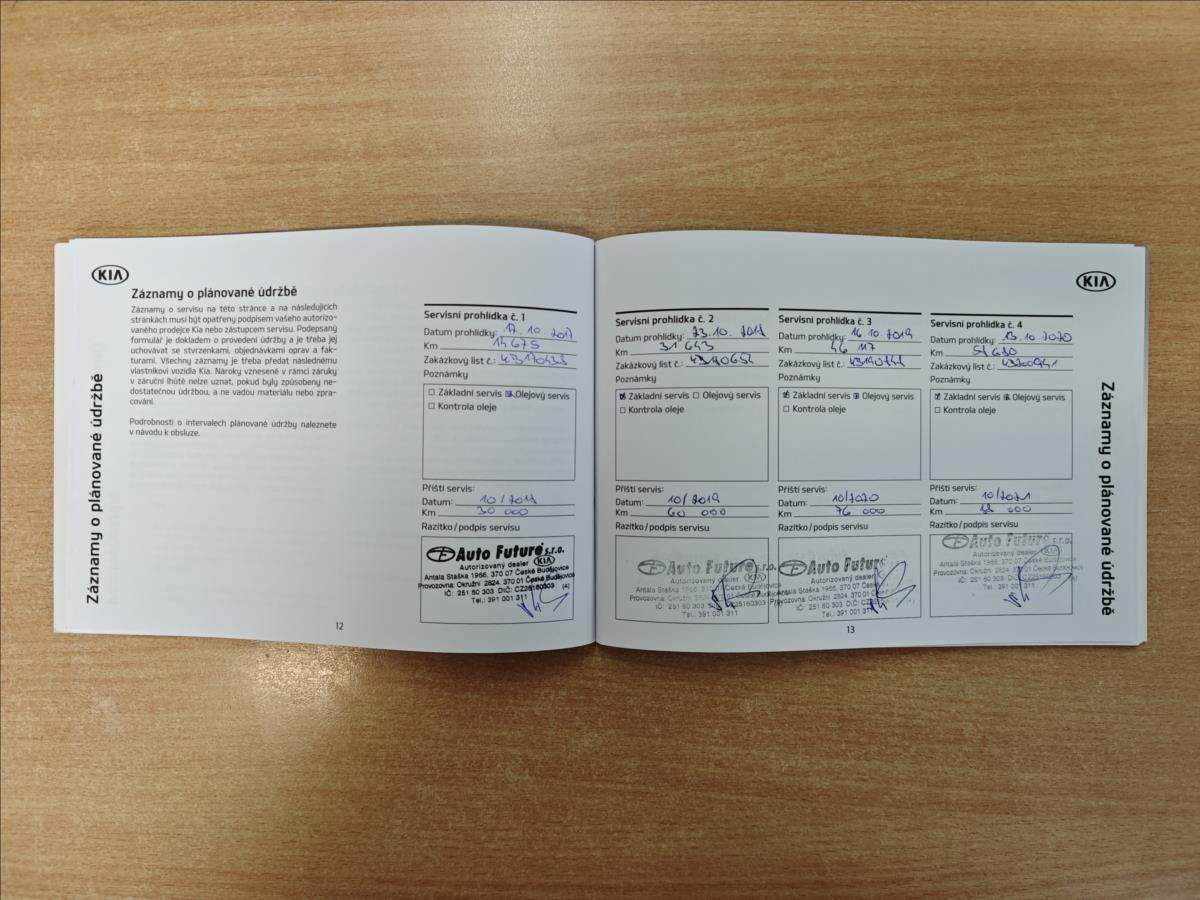 KIA
Záznamy o plánované údržbě
Záznamy o servisu na této stránce a na následujících
stránkách musí být opatřeny podpisem vašeho autorizo-
vaného prodejce Kia nebo zástupcem servisu. Podepsaný
formulář je dokladem o provedení údržby a je třeba jej
uchovávat se stvrzenkami, objednávkami oprav a fak-
turami. Všechny záznamy je třeba předat následnému
vlastníkovi vozidla Kia. Nároky vznesené v rámci záruky
v záruční lhůtě nelze uznat, pokud byly způsobeny ne-
dostatečnou údržbou, a ne vadou materiálu nebo zpra-
cování.
Podrobnosti o intervalech plánované údržby naleznete
v návodu k obsluze.
Záznamy o plánované údržbě
Servisní prohlídka č. 1
Datum prohlídky: 17.10.2017
Km 14 675
Zakázkový list č.:
Poznámky
Základní servis Olejový servis
Kontrola oleje
Příští servis:
Datum: 10/2018
Km 30 000
Razítko/podpis servisu
Auto Future s.r.o.
Autorizovaný dealer KIA
Antala Staška 1966, 370 07 České Budějovice
Provozovna: Okružní 2824, 370 01 České Budějovice
IČ: 251 60 303 DIČ: CZ25160303 (4)
Tel.: 391 001 311
12
Servisní prohlídka č. 2
Datum prohlídky: 23.10.2018
Km 31 643
Zakázkový list č.:
Poznámky
Základní servis Olejový servis
Kontrola oleje
Příští servis:
Datum: 10/2019
Km 60 000
Razítko/podpis servisu
Auto Future s.r.o.
Autorizovaný dealer KIA
Antala Staška 1966, 370 07 České Budějovice
Provozovna: Okružní 2824, 370 01 České Budějovice
IČ: 251 60 303 CZ25160303
Tel.: 391 001 311
Servisní prohlídka č. 3
Datum prohlídky: 14.10.2019
Km 46 117
Zakázkový list č.:
Poznámky
Základní servis Olejový servis
Kontrola oleje
Příští servis:
Datum: 10/2020
Km 76 000
Razítko/podpis servisu
Auto Future
Autorizovaný dealer
Antala Staška 1966, 370 07
Provozovna: Okružní 2824, 370 01
IČ: 251 60 303 DIČ:
Tel.: 391 001 311
Servisní prohlídka č. 4
Datum prohlídky: 13.10.2020
Km
Zakázkový list č.:
Poznámky
Základní servis Olejový servis
Kontrola oleje
Příští servis:
Datum: 10/2021
Km 88 000
Razítko/podpis servisu
Auto Future s.r.o.
Autorizovaný dealer KIA
Antala Staška 1966, 370 07 České Budějovice
Provozovna: Okružní 2824, 370 01 České Budějovice
IČ: 251 60 303 DIČ: CZ25160303 (4)
Tel.: 391 001 311
13
KIA
Záznamy o plánované údržbě